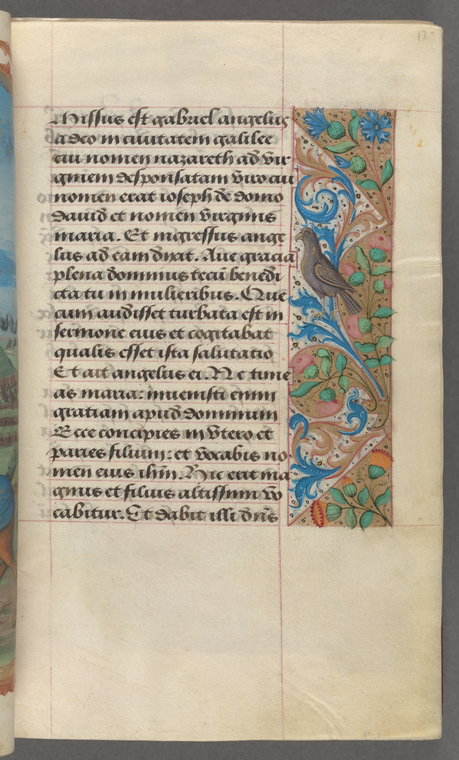 17
Missus est gabriel angelus
a deo in civitatem galilee
cui nomen nazareth ad vir
ginem desponsatam viro cui
nomen erat ioseph de domo
david et nomen virginis
maria. Et ingressus ange
lus ad eam dixit. Ave gracia
plena dominus tecū benedi
cta tu in mulieribus. Que
cum audisset turbata est in
sermone eius et cogitabat
qualis esset ista salutatio
Et ait angelus ei. Ne time
as maria: invenisti enim
gratiam apud dominum
Ecce concipies in vtero et
paries filium: et vocabis no
men eius ihm̄. Hic erit ma
gnus et filius altissimi vo
cabitur. Et dabit illi dn̄s